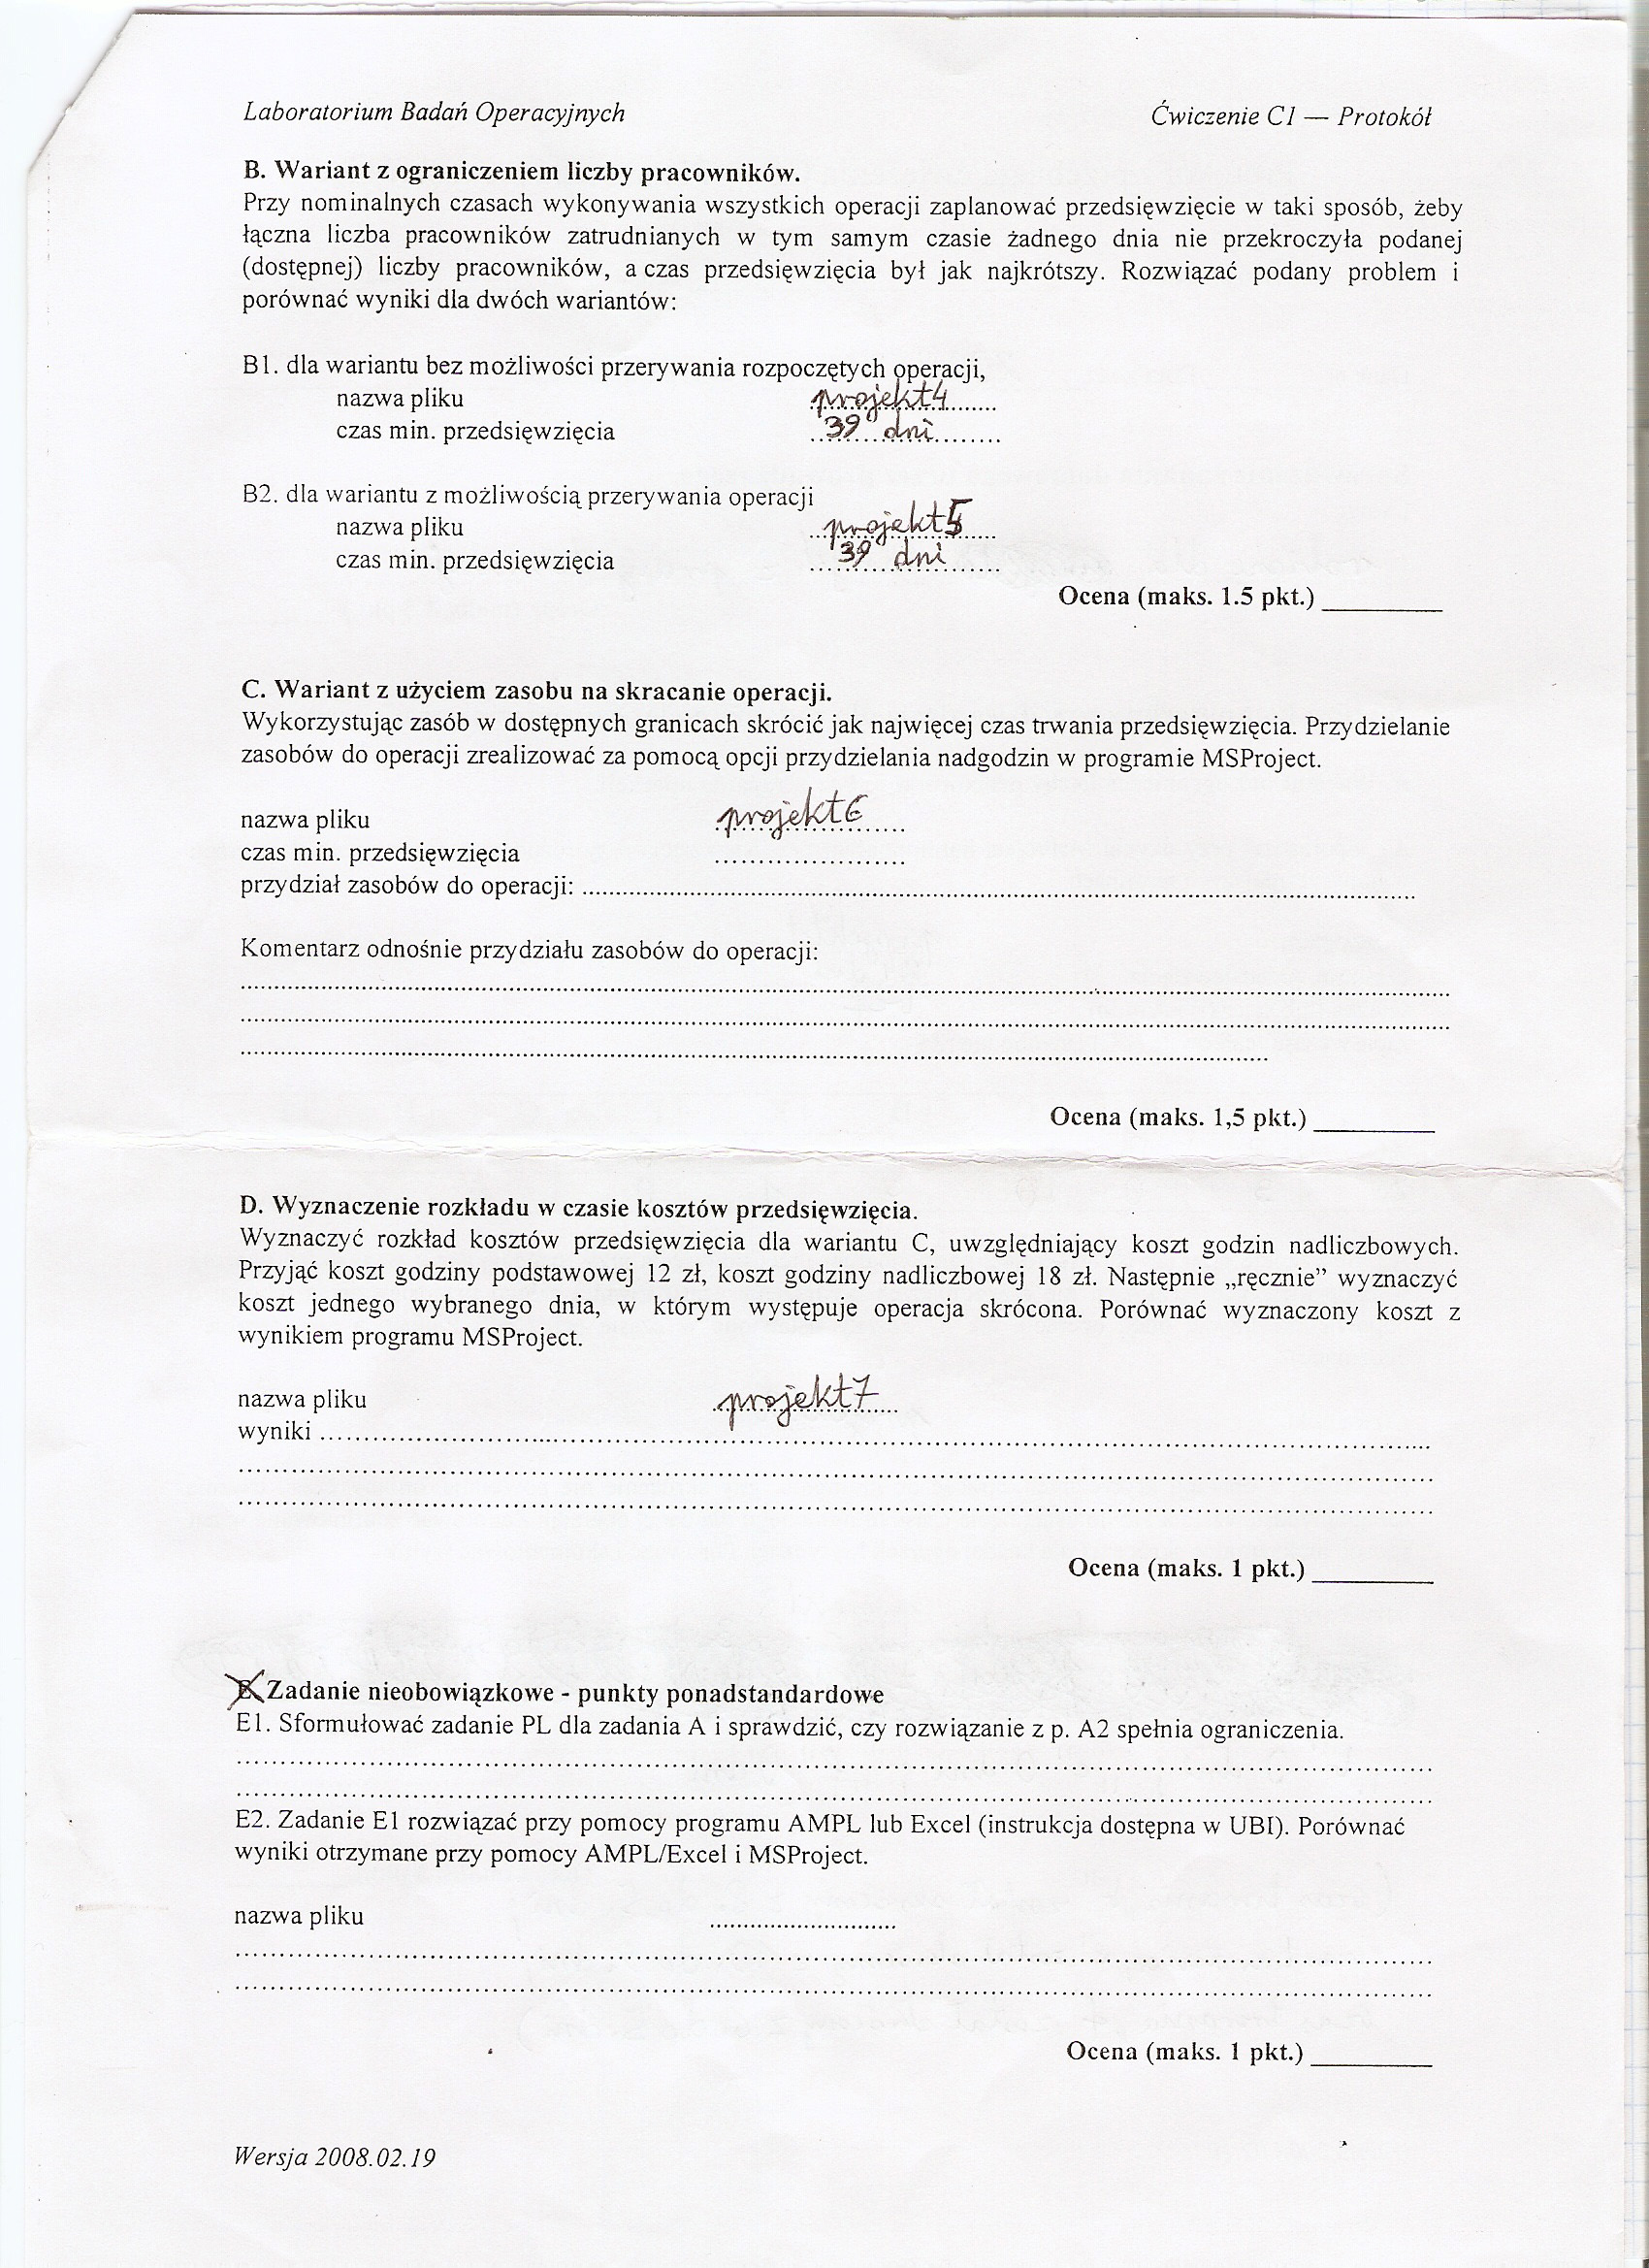 Laboratorium Badań Operacyjnych Ćwiczenie C1 — Protokół
B. Wariant z ograniczeniem liczby pracowników.
Przy nominalnych czasach wykonywania wszystkich operacji zaplanować przedsięwzięcie w taki sposób, żeby
łączna liczba pracowników zatrudnianych w tym samym czasie żadnego dnia nie przekroczyła podanej
(dostępnej) liczby pracowników, a czas przedsięwzięcia był jak najkrótszy. Rozwiązać podany problem i
porównać wyniki dla dwóch wariantów:
B1. dla wariantu bez możliwości przerywania rozpoczętych operacji,
nazwa pliku projekt4
czas min. przedsięwzięcia 39 dni
B2. dla wariantu z możliwością przerywania operacji
nazwa pliku projekt5
czas min. przedsięwzięcia 39 dni
Ocena (maks. 1.5 pkt.)
C. Wariant z użyciem zasobu na skracanie operacji.
Wykorzystując zasób w dostępnych granicach skrócić jak najwięcej czas trwania przedsięwzięcia. Przydzielanie
zasobów do operacji zrealizować za pomocą opcji przydzielania nadgodzin w programie MSProject.
nazwa pliku projekt6
czas min. przedsięwzięcia
przydział zasobów do operacji:
Komentarz odnośnie przydziału zasobów do operacji:
Ocena (maks. 1,5 pkt.)
D. Wyznaczenie rozkładu w czasie kosztów przedsięwzięcia.
Wyznaczyć rozkład kosztów przedsięwzięcia dla wariantu C, uwzględniający koszt godzin nadliczbowych.
Przyjąć koszt godziny podstawowej 12 zł, koszt godziny nadliczbowej 18 zł. Następnie „ręcznie” wyznaczyć
koszt jednego wybranego dnia, w którym występuje operacja skrócona. Porównać wyznaczony koszt z
wynikiem programu MSProject.
nazwa pliku projekt7
wyniki
Ocena (maks. 1 pkt.)
E. Zadanie nieobowiązkowe - punkty ponadstandardowe
E1. Sformułować zadanie PL dla zadania A i sprawdzić, czy rozwiązanie z p. A2 spełnia ograniczenia.
E2. Zadanie E1 rozwiązać przy pomocy programu AMPL lub Excel (instrukcja dostępna w UBI). Porównać
wyniki otrzymane przy pomocy AMPL/Excel i MSProject.
nazwa pliku
Ocena (maks. 1 pkt.)
Wersja 2008.02.19